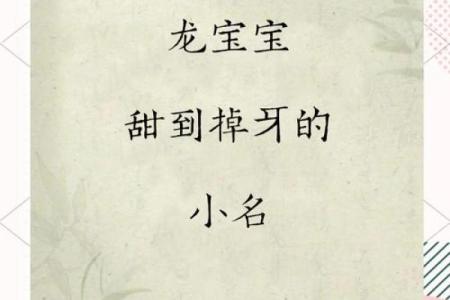 龙宝宝
甜到掉牙的
小名